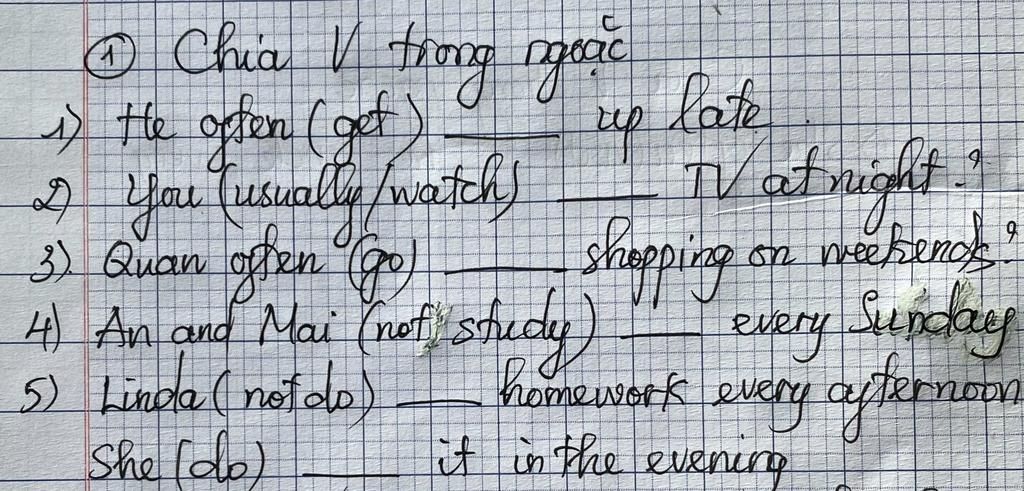 ① Chia V trong ngoặc
1) He often (get) ____ up late.
2) You (usually/watch) ____ TV at night?
3). Quan often (go) ____ shopping on weekends?
4) An and Mai (not study) ____ every Sunday
5) Linda (not do) ____ homework every afternoon
She (do) ____ it in the evening